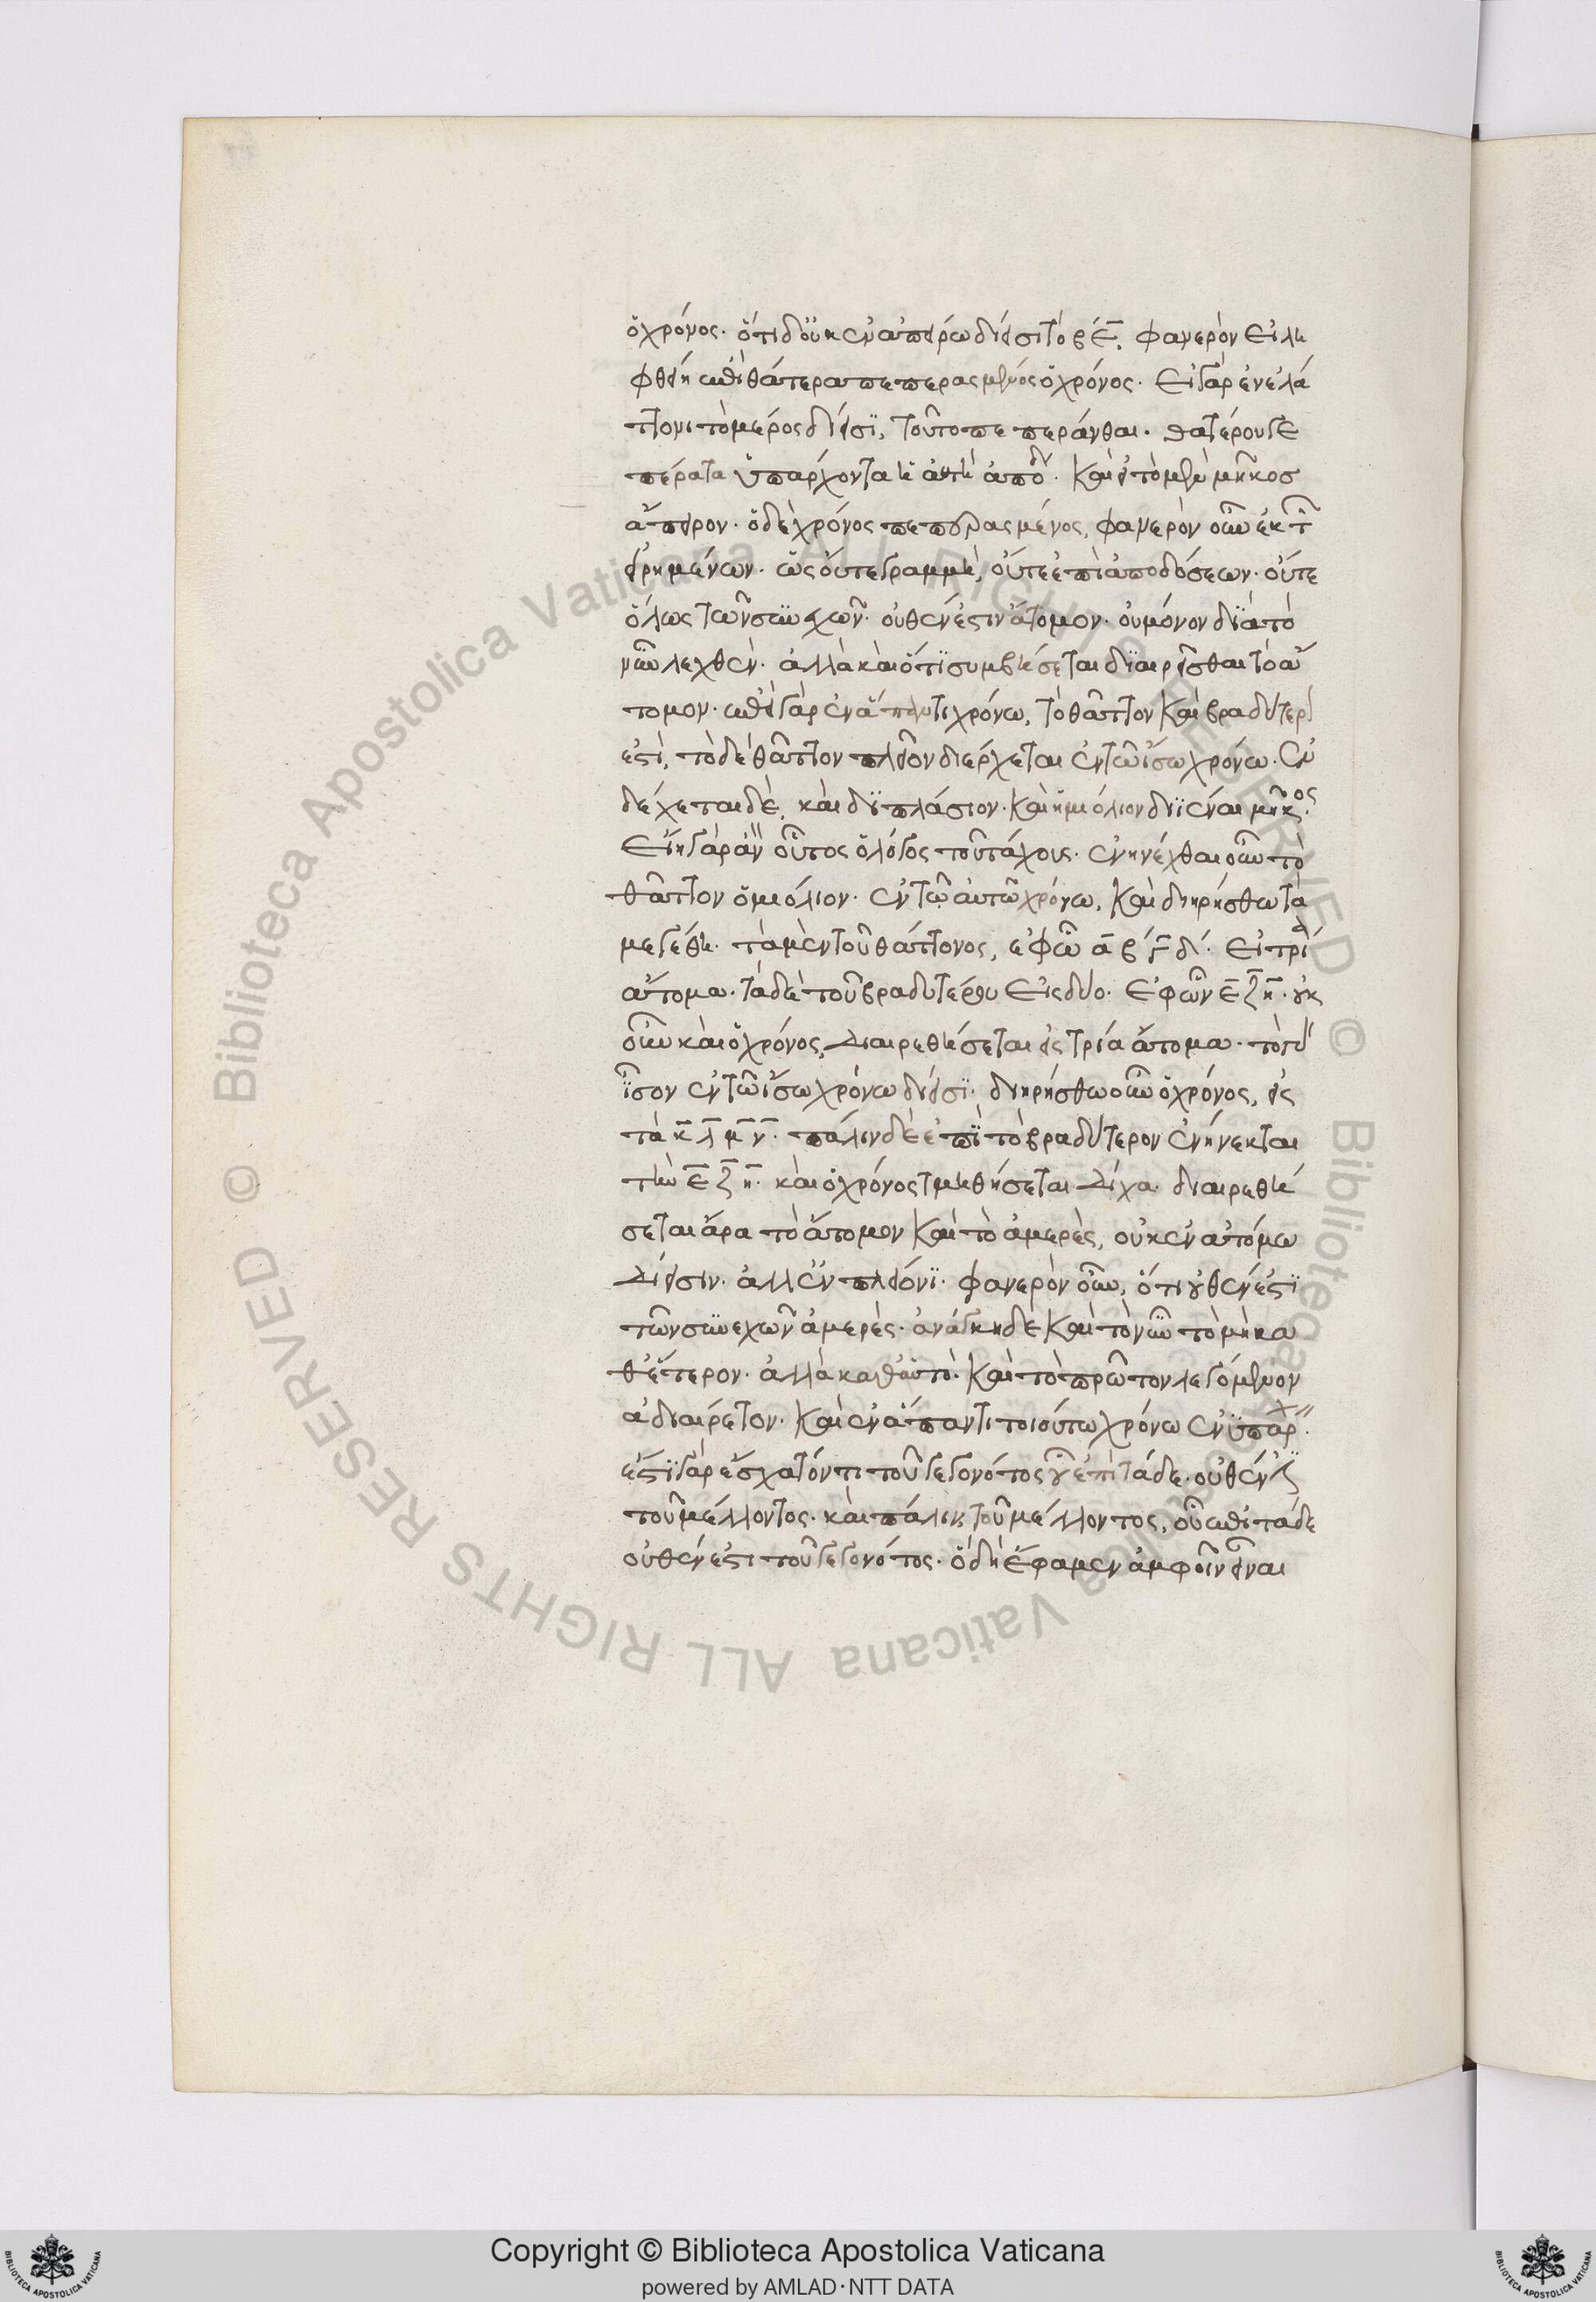 ὁ χρόνος. ὅτι δ' οὐκ ἐν ἀπείρω δίεισι τὸ βε̄. φανερὸν εἰ λη
φθείη ἐπὶ θάτερα πεπερασμένος ὁ χρόνος. εἰ γὰρ ἐν ἐλά
ττονι τὸ μέρος δίεισι, τοῦτο πεπεράνθαι. θατέρου γε
πέρατα ὑπάρχοντα
ἄπειρον. ὁ δὲ χρόνος πεπερασμένος, φανερὸν οὖν ἐκ τ
εἰρημένων. ὡς οὔτε γραμμὴ, οὔτε ἐπὶ ἀποδόσεων. οὔτε
ὅλως τῶν συνεχῶν. οὐθέν ἐστιν ἄτομον. οὐ μόνον διὰ τὸ
νῦν λεχθέν. ἀλλὰ καὶ ὅτι συμβήσεται διαιρεῖσθαι τὸ ἄ
τομον. ἐπεὶ γὰρ ἐν ἅπαντι χρόνω, τὸ θᾶττον καὶ βραδύτερ
ἐστὶ, τὸ δὲ θᾶττον πλεῖον διέρχεται ἐν τῶ ἴσω χρόνω. ἐν
δέχεται δὲ, καὶ διπλάσιον. καὶ ἡμιόλιον διϊέναι μῆκος.
εἴη γὰρ ἂν οὗτος ὁ λόγος τοῦ τάχους. ἐνηνέχθαι οὖν τὸ
θᾶττον ὁμιόλιον. ἐν τῶ αὐτῶ χρόνω, καὶ διηρήσθω τὰ
μεγέθη. τὰ μὲν τοῦ θάττονος, ἐφ' ὧ ᾱ β γ̄ δ. εἰ τρία
ἄτομα. τὰ δὲ τοῦ βραδυτέρου εἰς δύο. ἐφ' ὧν ε̄ ζ̄ η̄. οὐκ
οὖν καὶ ὁ χρόνος, διαιρεθήσεται εἰς τρία ἄτομα. τὸ γὰρ
ἴσον ἐν τῶ ἴσω χρόνω δίεισι. διηρήσθω οὖν ὁ χρόνος, εἰς
τὰ κ̄ λ̄ μ̄ ν̄. πάλιν δὲ ἐπὶ τὸ βραδύτερον ἐνήνεκται
τὴν ε̄ ζ̄ η̄. καὶ ὁ χρόνος τμηθήσεται δίχα. διαιρεθή
σεται ἄρα τὸ ἄτομον καὶ τὸ ἀμερὲς, οὐκ ἐν ἀτόμω
δίεισιν. ἀλλ' ἐν πλείονι. φανερὸν οὖν, ὅτι οὐθέν ἐστι
τῶν συνεχῶν ἀμερὲς. ἀνάγκη δὲ καὶ τὸ νῦν τὸ μὴ κα
θ' ἕτερον. ἀλλὰ καθ' αὑτὸ. καὶ τὸ πρῶτον λεγόμενον
ἀδιαίρετον. καὶ ἐν ἅπαντι τοιούτω χρόνω ἐνυπάρχ
ἔστι γὰρ ἔσχατόν τι τοῦ γεγονότος οὗ ἐπὶ τάδε. οὐθέν ἐστι
τοῦ μέλλοντος. καὶ πάλιν τοῦ μέλλοντος, οὗ ἐπὶ τάδε
οὐθέν ἐστι τοῦ γεγονότος. ὃ δὴ ἔφαμεν ἀμφοῖν εἶναι
Copyright © Biblioteca Apostolica Vaticana
powered by AMLAD·NTT DATA